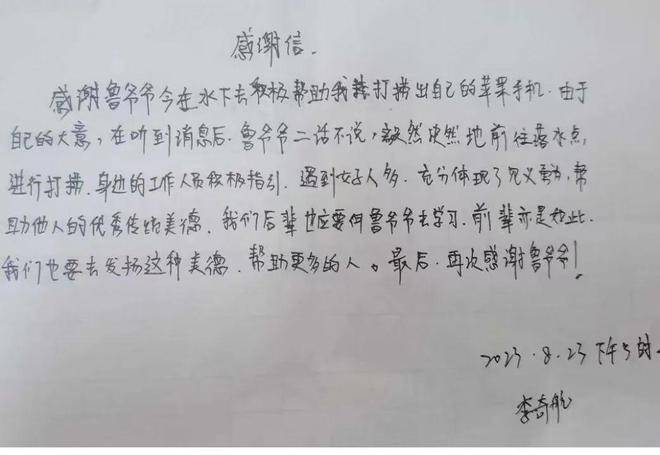 感谢信.
感谢鲁爷爷今在水下去积极帮助我打捞出自己的苹果手机.由于
自己的大意,在听到消息后.鲁爷爷二话不说,毅然决然地前往落水点,
进行打捞.身边的工作人员积极指引.遇到好人多.充分体现了见义勇为,帮
助他人的优秀传统美德.我们后辈也应要向鲁爷爷去学习.前辈亦是如此.
我们也要去发扬这种美德.帮助更多的人。最后.再次感谢鲁爷爷!
2023.8.23下午5时
李奇航